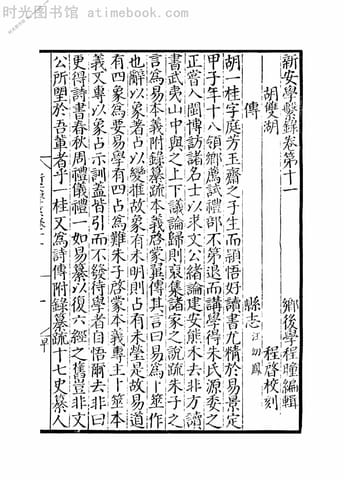 时光图书馆 - atimebook.com
新安學繫錄卷第十一
鄉後學程曈編輯
胡雙湖
程啓校刻
傳
縣志 汪幼鳳
胡一桂字庭芳玉齋之子生而穎悟好讀書尤精於易景定
甲子年十八領鄉薦試禮部不第退而講學得朱氏源委之
正嘗入閩博訪諸名士以求文公緒論建安熊禾去非方讀
書武夷山中與之上下議論歸則裒集諸家之說疏朱子之
言爲易本義附錄纂疏本義啓蒙翼傳其言曰易爲卜筮作
也辭以象著占以變推故象有未明則占有未瑩是故易道
有四象爲要易學有四占爲難朱子啓蒙本義專主卜筮本
義文專以象占示訓盖皆引而不發待學者自悟爾去非曰
更得詩書春秋周禮儀禮一如易纂以復六經之舊豈非文
公所望於吾輩者乎一桂又爲詩傳附錄纂疏十七史纂人